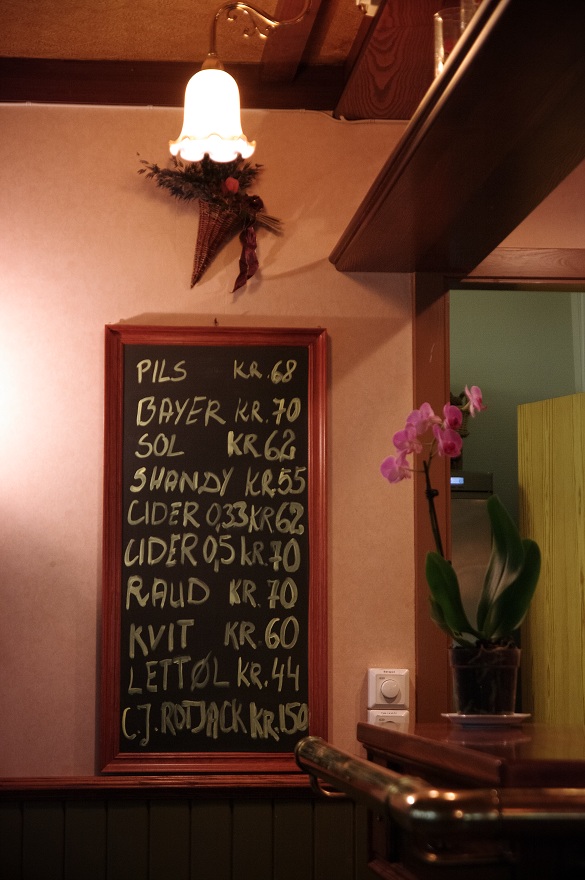 PILS KR.68
BAYER KR.70
SOL KR.62
SHANDY KR.55
CIDER 0,33 KR62
CIDER 0,5 KR.70
RAUD KR.70
KVIT KR.60
LETTØL KR.44
C.J. ROTJACK KR.150